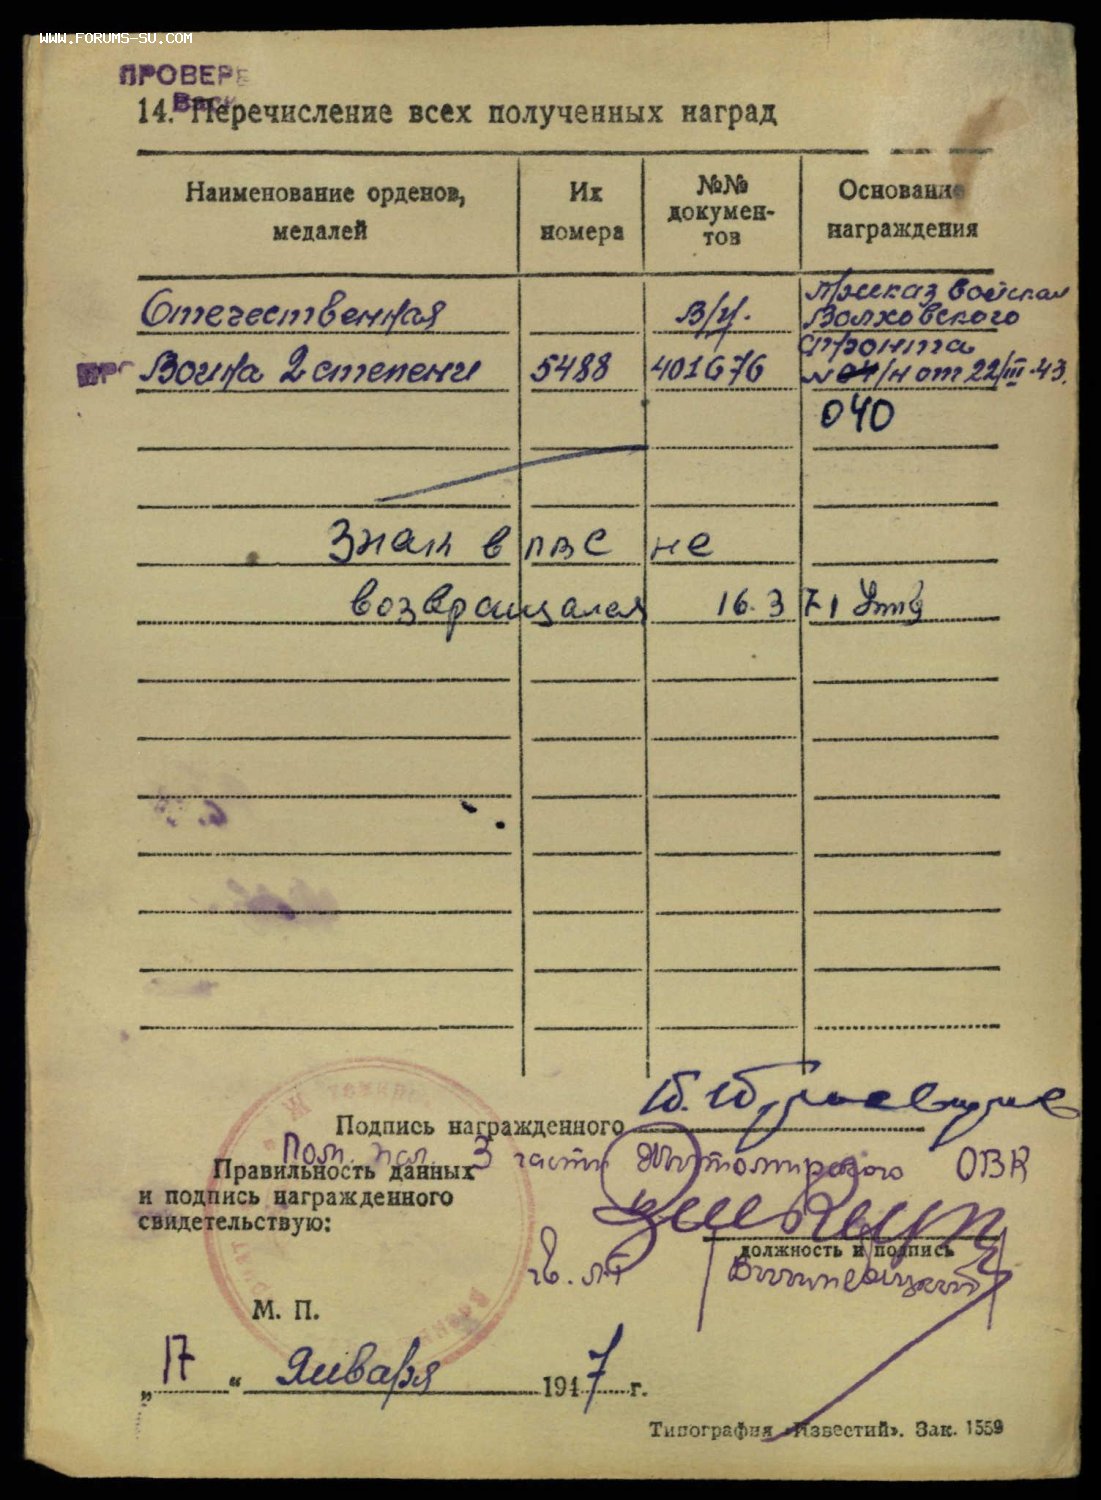 WWW.FORUMS-SU.COM
ПРОВЕРЕ
14. Перечисление всех полученных наград
Наименование орденов, медалей
Их номера
№№ докумен-тов
Основание награждения
Отечественная
В/И.
Приказ войскам
Волховского
фронта
Война 2 степени 5488 401676
/н от 22/III-43.
040
Знак в ПВС не
возвращался 16.3 71
Подпись награжденного
3 части Житомирского ОВК
Правильность данных
и подпись награжденного
свидетельствую:
должность и подпись
гв. л-т
М. П.
„17“ Января 1947 г.
Типография «Известий». Зак. 1559